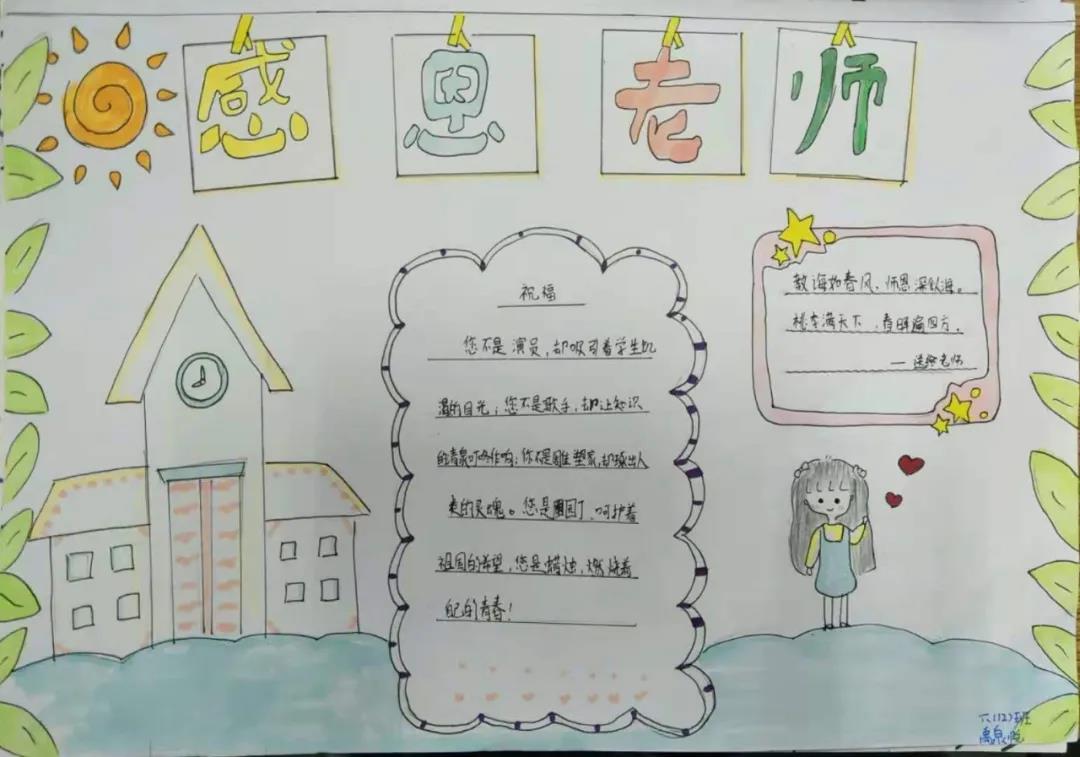 感恩老师
祝福
您不是演员，却吸引着学生饥
渴的目光；您不是歌手，却让知识
的清泉叮咚作响；你不是雕塑家，却
的灵魂。您是园丁，呵护着
祖国的希望，您是蜡烛，燃烧着
自己的青春！
教诲如春风、师恩深似海。
桃李满天下、春晖遍四方。
—送给老师
六(12)班